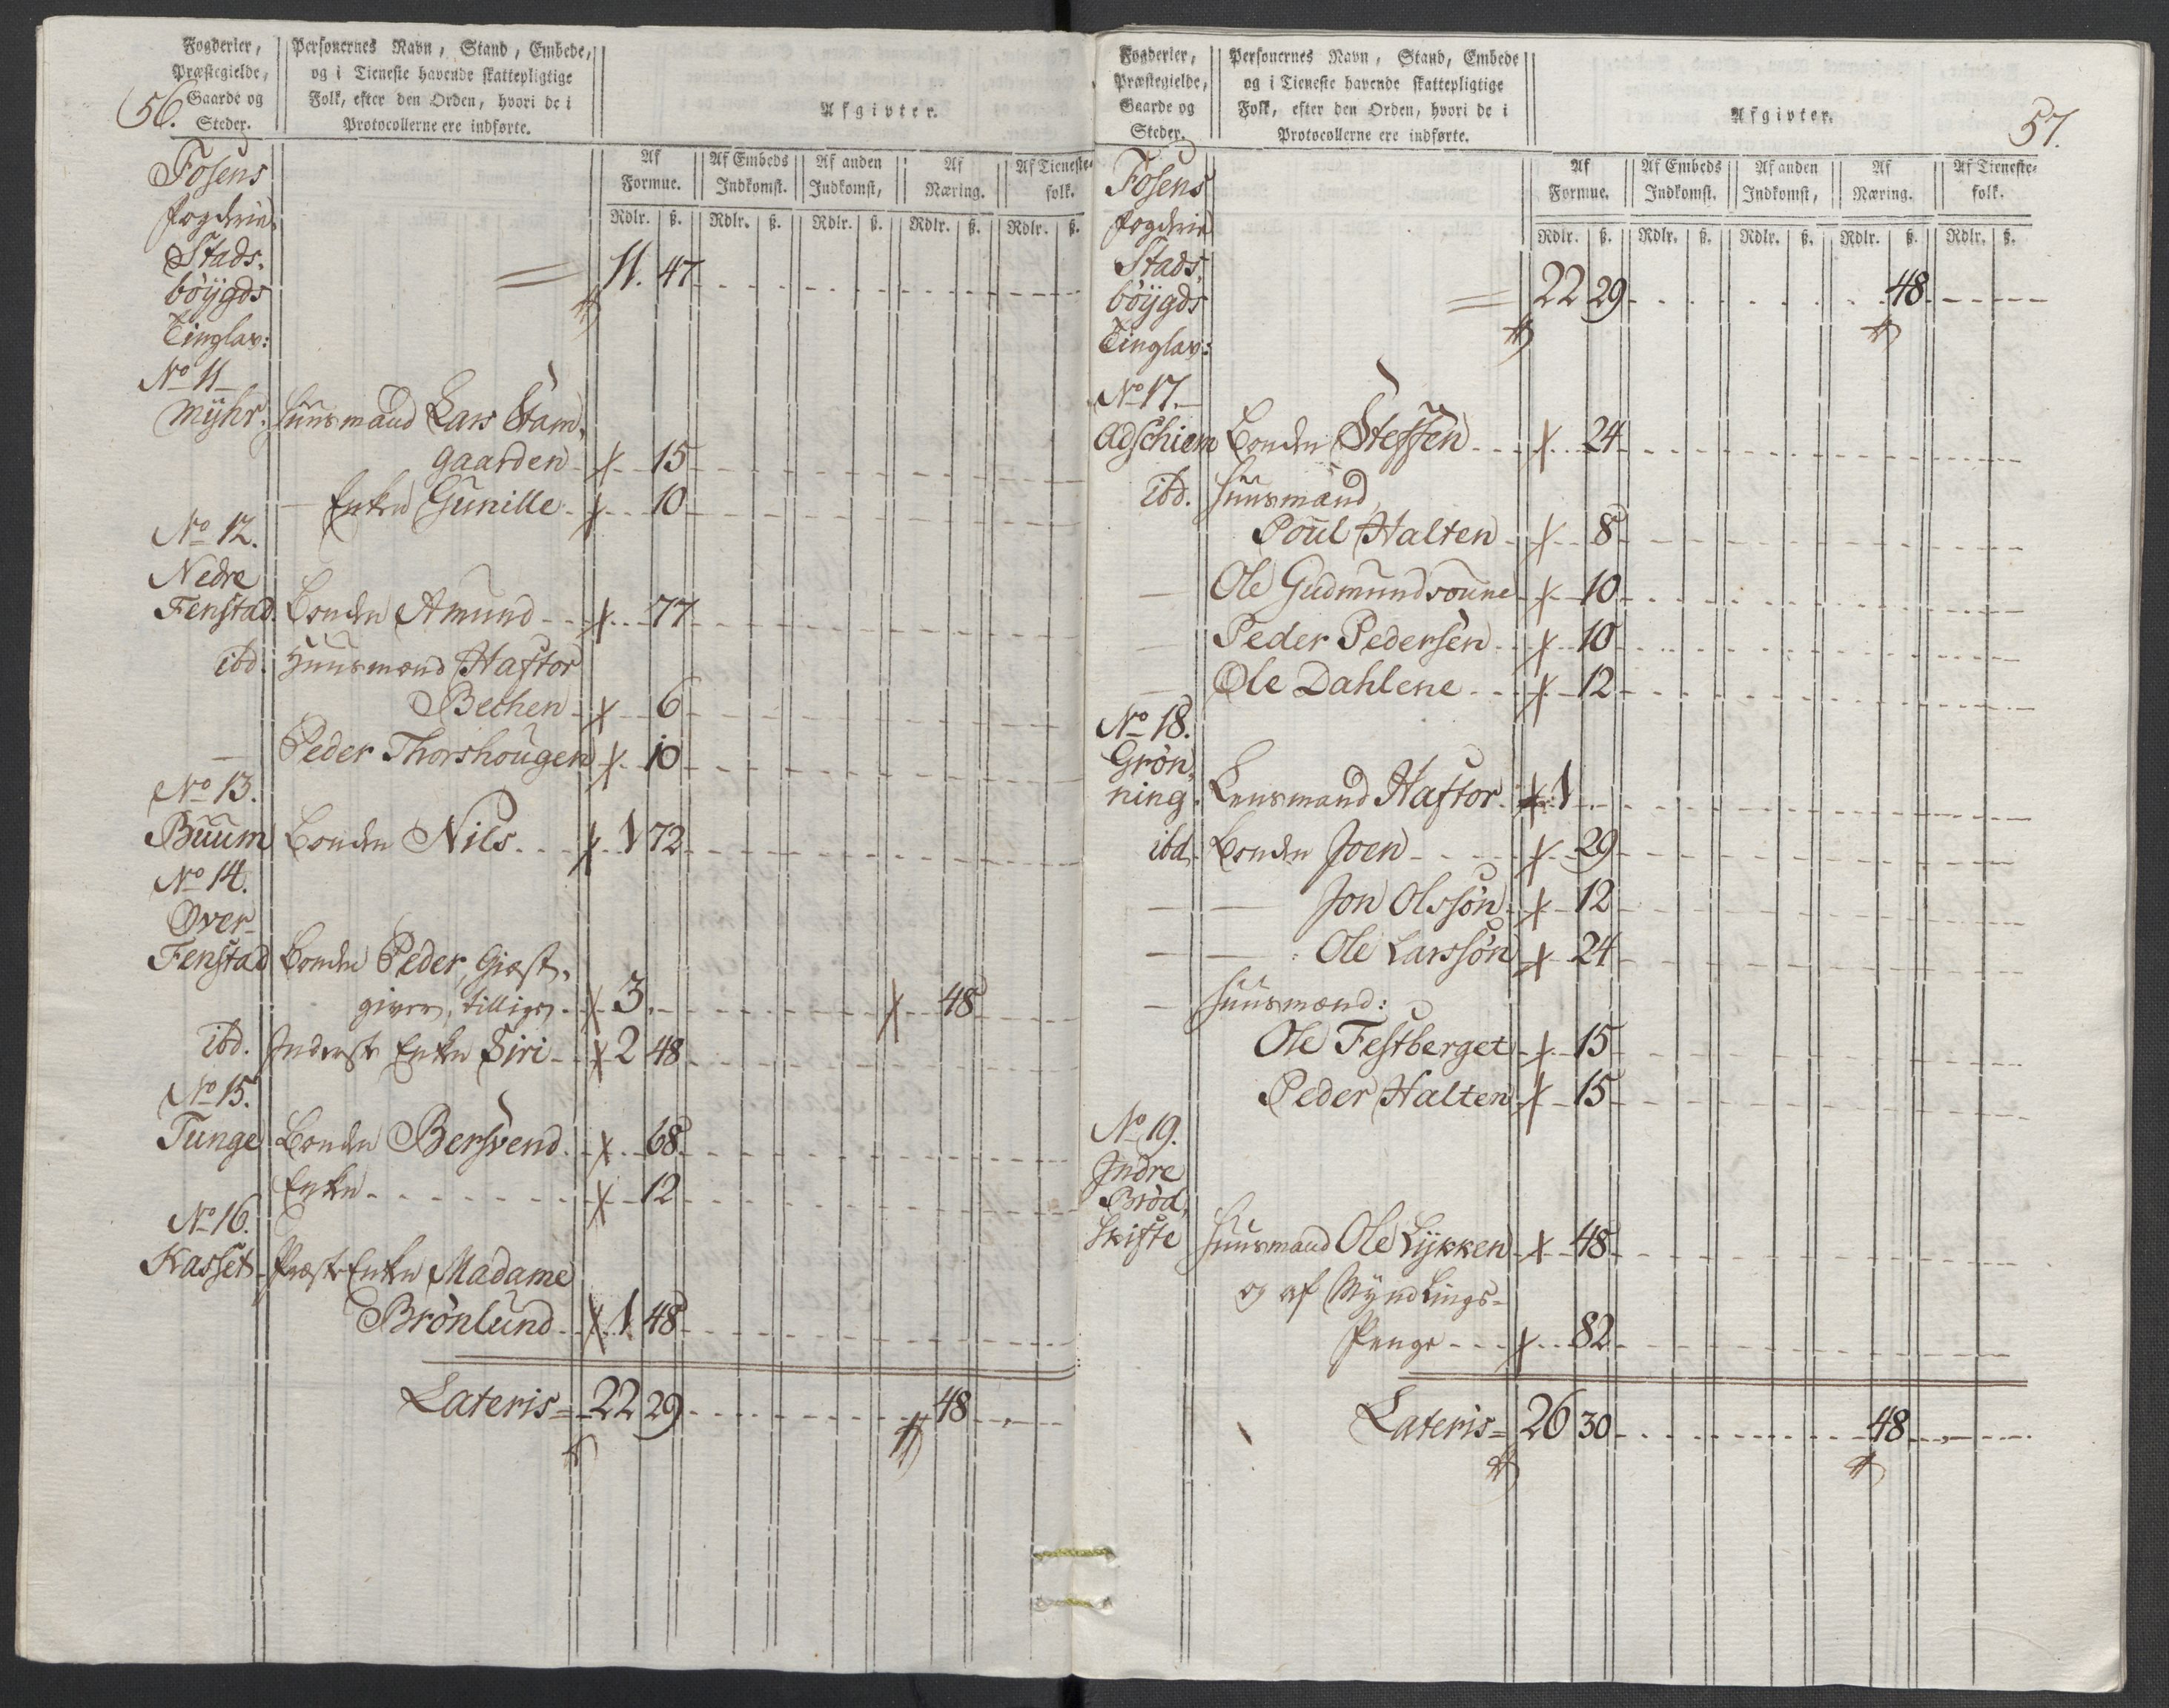 56.
Fogderier,
Præstegielde,
Gaarde og
Steder.
Personernes Navn, Stand, Embede,
og i Tieneste havende skattepligtige
Folk, efter den Orden, hvori de i
Protocollerne ere indførte.
Afgivter.
Af Formue. Af Embeds Indkomst. Af anden Indkomst, Af Næring. Af Tieneste- folk.
Rdlr. ß. Rdlr. ß. Rdlr. ß. Rdlr. ß. Rdlr. ß.
Fosens
fogderie
Stads-
böygds
Tinglav:
= 11. 47
No 11
Myhr. Huusmand Lars Stam-
gaarden 15
Enken Gunille 10
No 12.
Nedre
Fenstad. Bonden Amund 77
ibd. Huusmænd Haftor
Bechen 6
— Peder Thorshougen 10
No 13.
Buum Bonden Nils 1 72
No 14.
Over-
Fenstad Bonden Peder, Giæst-
giver, tillige 3. 48
ibd. Inderste Enken Siri 2 48
No 15.
Tunge Bonden Bersvend 68
Enken 12
No 16.
Kasset Præste Enken Madame
Brönlund 1 48
Lateris = 22 29 48
57.
Fogderier,
Præstegielde,
Gaarde og
Steder.
Personernes Navn, Stand, Embede
og i Tieneste havende skattepligtige
Folk, efter den Orden, hvori de i
Protocollerne ere indførte.
Afgivter.
Af Formue. Af Embeds Indkomst. Af anden Indkomst, Af Næring. Af Tieneste- folk.
Rdlr. ß. Rdlr. ß. Rdlr. ß. Rdlr. ß. Rdlr. ß.
Fosens
fogderie
Stads-
böygds
Tinglav:
= 22 29 48
No 17.
Adschiem Bonden Steffen 24
ibd. Huusmænd
Poul Halten 8
— Ole Gudmundsoune 10
— Peder Pedersen 10
— Ole Dahlene 12
No 18.
Grön-
ning. Lensmand Haftor 1
ibd. Bonden Joen 29
— — Jon Olssön 12
— — Ole Larssön 24
— Huusmænd:
Ole Festberget 15
Peder Halten 15
No 19.
Indre
Bröd-
skifte Huusmand Ole Lykken 48
og af Myndlings-
Penge 82
Lateris = 26 30 48